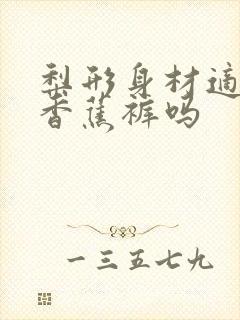 梨形身材适
香蕉裤吗
一三五七九